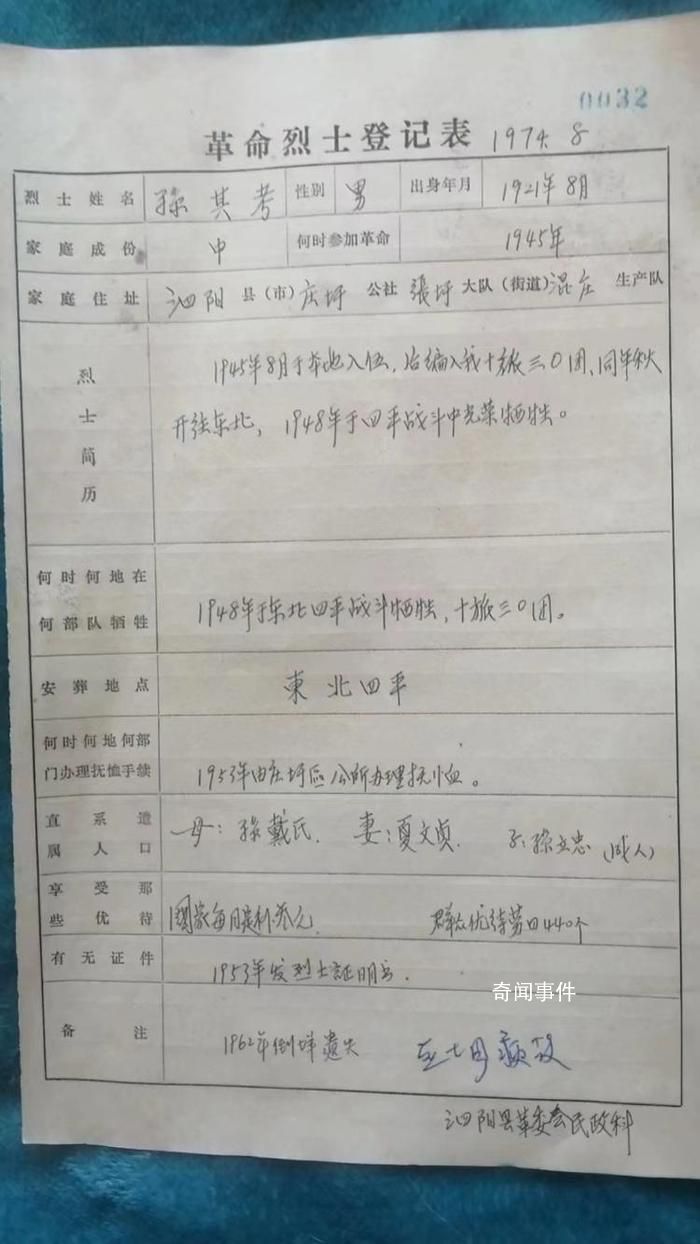 0032
革命烈士登记表 1974.8
烈士姓名 孫其考 性别 男 出身年月 1921年8月
家庭成份 中 何时参加革命 1945年
家庭住址 泗阳 县(市) 庄圩 公社 張圩 大队(街道) 混庄 生产队
烈士简历
1945年8月于本地入伍,后编入我十旅三〇团、同年秋
开往东北,1948年于四平战斗中光荣牺牲。
何时何地在
何部队牺牲
1948年于东北四平战斗牺牲,十旅三〇团。
安葬地点 東北四平
何时何地何部
门办理抚恤手续
1953年由庄圩区公所办理抚恤。
直系遗
属人口
母:孫戴氏. 妻:夏文贞. 子:孫立忠(成人)
享受那
些优待
國家每月定补叁元. 群众优待劳日440个
有无证件 1953年发烈士証明书.
奇闻事件
备注 1962年倒坍遗失
泗阳县革委会民政科